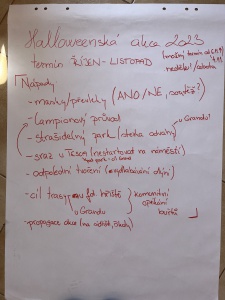 Halloweenská akce 2023
termín ŘÍJEN - LISTOPAD
(možný termín od
neděle / sobota
Nápady
- masky/převleky (ANO/NE, soutěž?)
- Lampionový průvod
u Grandu!
- strašidelný park / stezka odvahy
- sraz u TESCA (nestartovat na náměstí)
- odpolední tvoření (+ vydlabávání dýní)
- cíl trasy
hřiště
u Grandu
komunitní
opékání
buřtů
- propagace akce (na